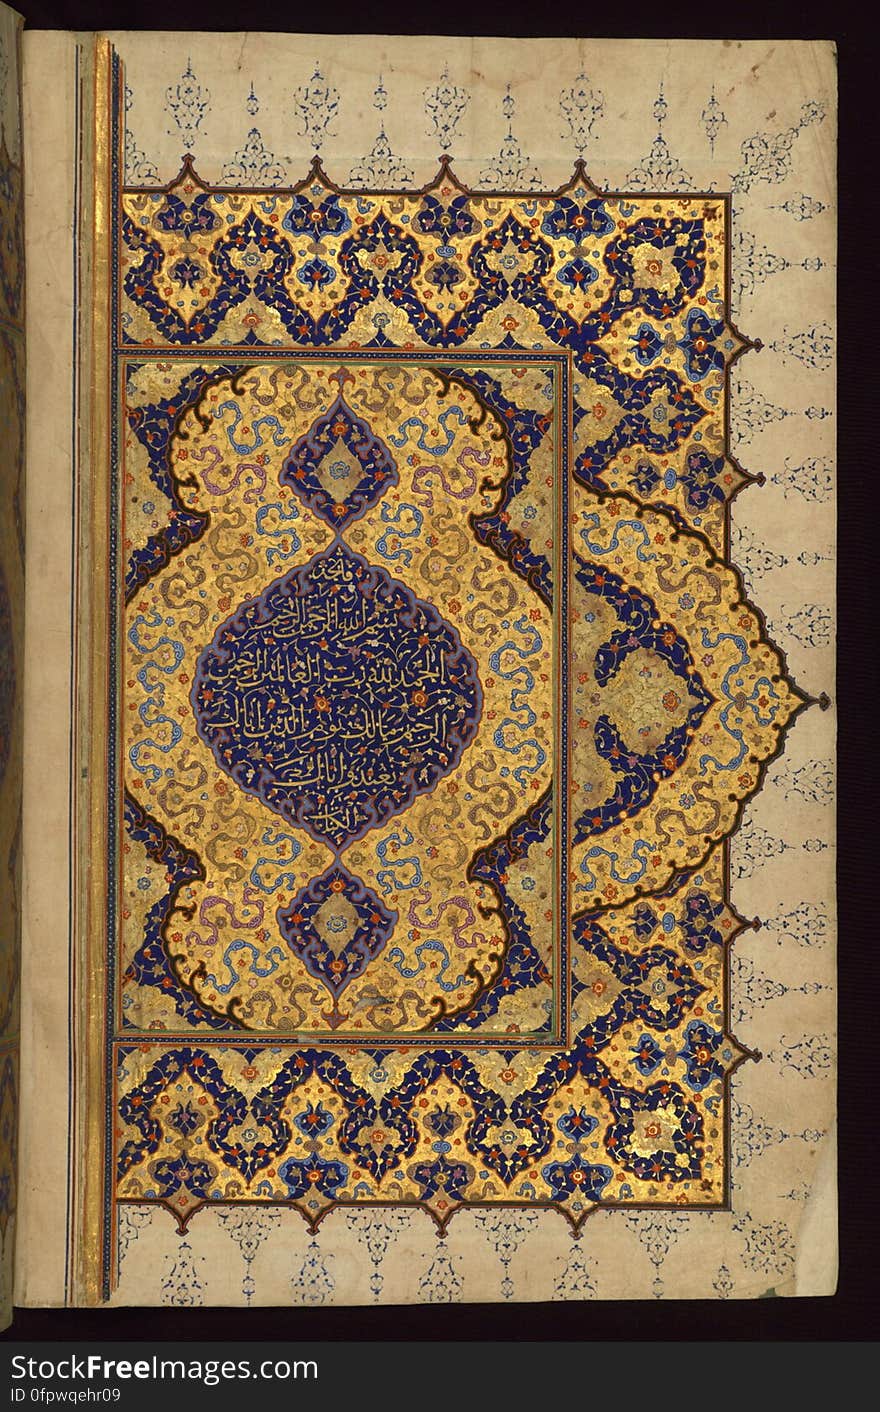 فاتحة
بسم الله الرحمن الرحيم
الحمد لله رب العالمين الرحمن
الرحيم مالك يوم الدين اياك
نعبد و اياك
الكتاب
StockFreeImages.com
ID 0fpwqehr09